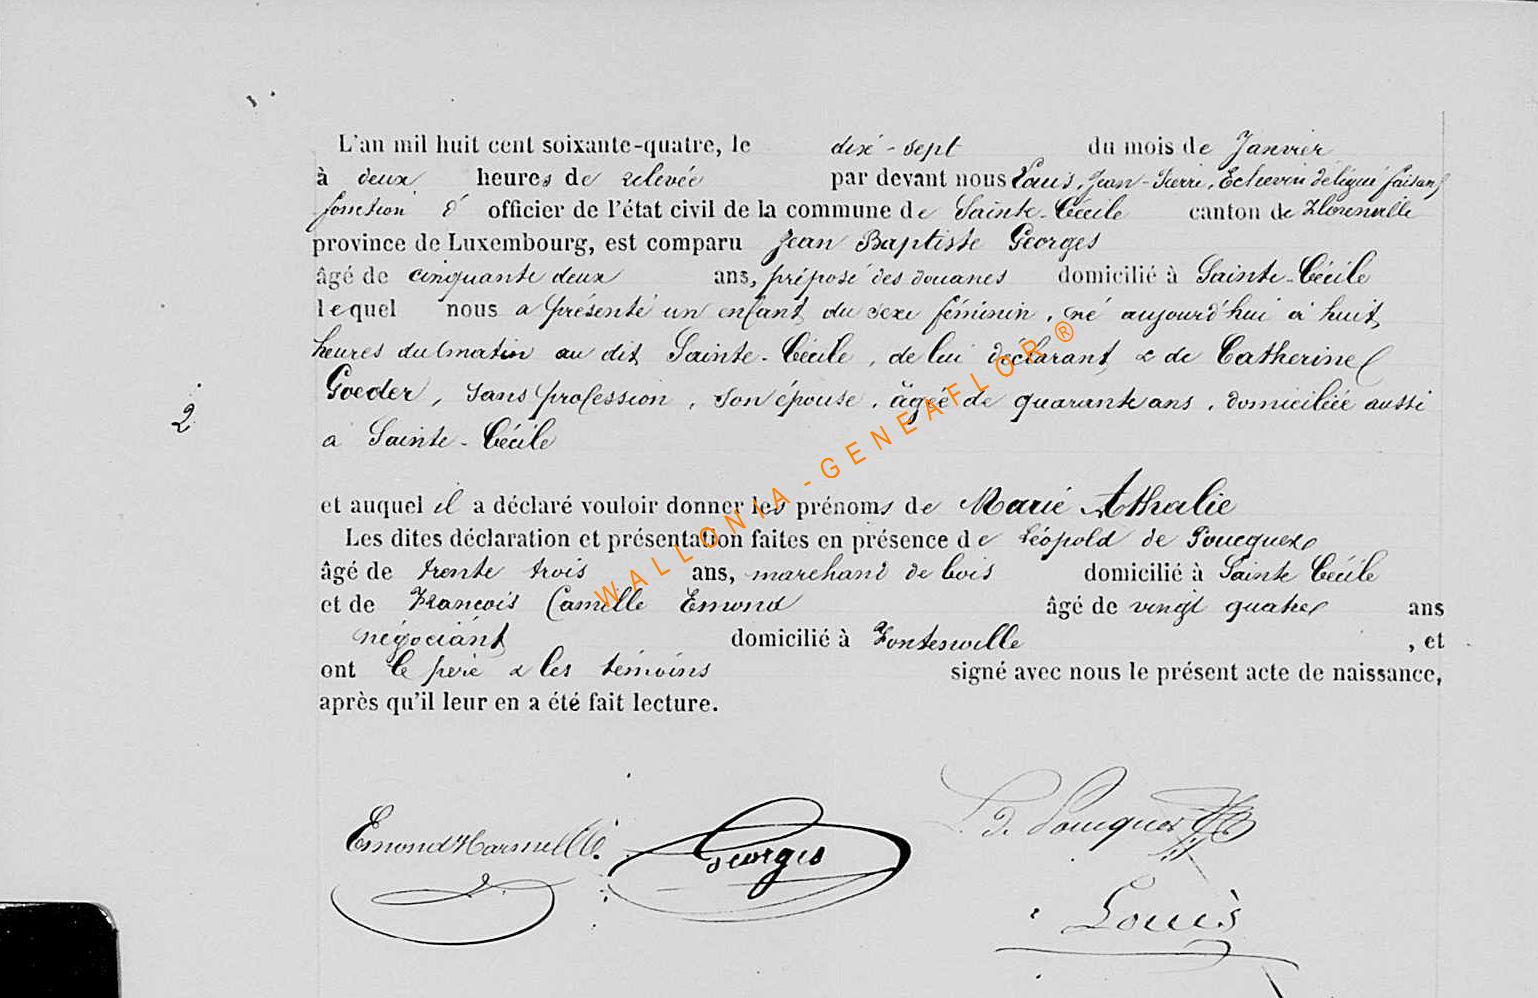 L'an mil huit cent soixante-quatre, le dix-sept du mois de Janvier
à deux heures de relevée par devant nous Louis, Jean-Pierre, Echevin délégué faisant
fonction d' officier de l'état civil de la commune de Sainte-Cécile canton de Florenville
province de Luxembourg, est comparu Jean Baptiste Georges
âgé de cinquante deux ans, préposé des douanes domicilié à Sainte-Cécile
lequel nous a présenté un enfant du sexe féminin, né aujourd'hui à huit
heures du matin au dit Sainte-Cécile, de lui déclarant & de Catherine
2
Goeder, sans profession, son épouse, âgée de quarante ans, domiciliée aussi
a Sainte-Cécile
et auquel il a déclaré vouloir donner les prénoms de Marie Athalie
Les dites déclaration et présentation faites en présence de Léopold de Poucques
âgé de trente trois ans, marchand de bois domicilié à Sainte Cécile
et de François Camille Emond âgé de vingt quatre ans
négociant domicilié à Fontenoille, et
ont le père & les témoins signé avec nous le présent acte de naissance,
après qu'il leur en a été fait lecture.
WALLONIA-GENEAFLOR®
L. d. Poucques
Emond Georges
Louis